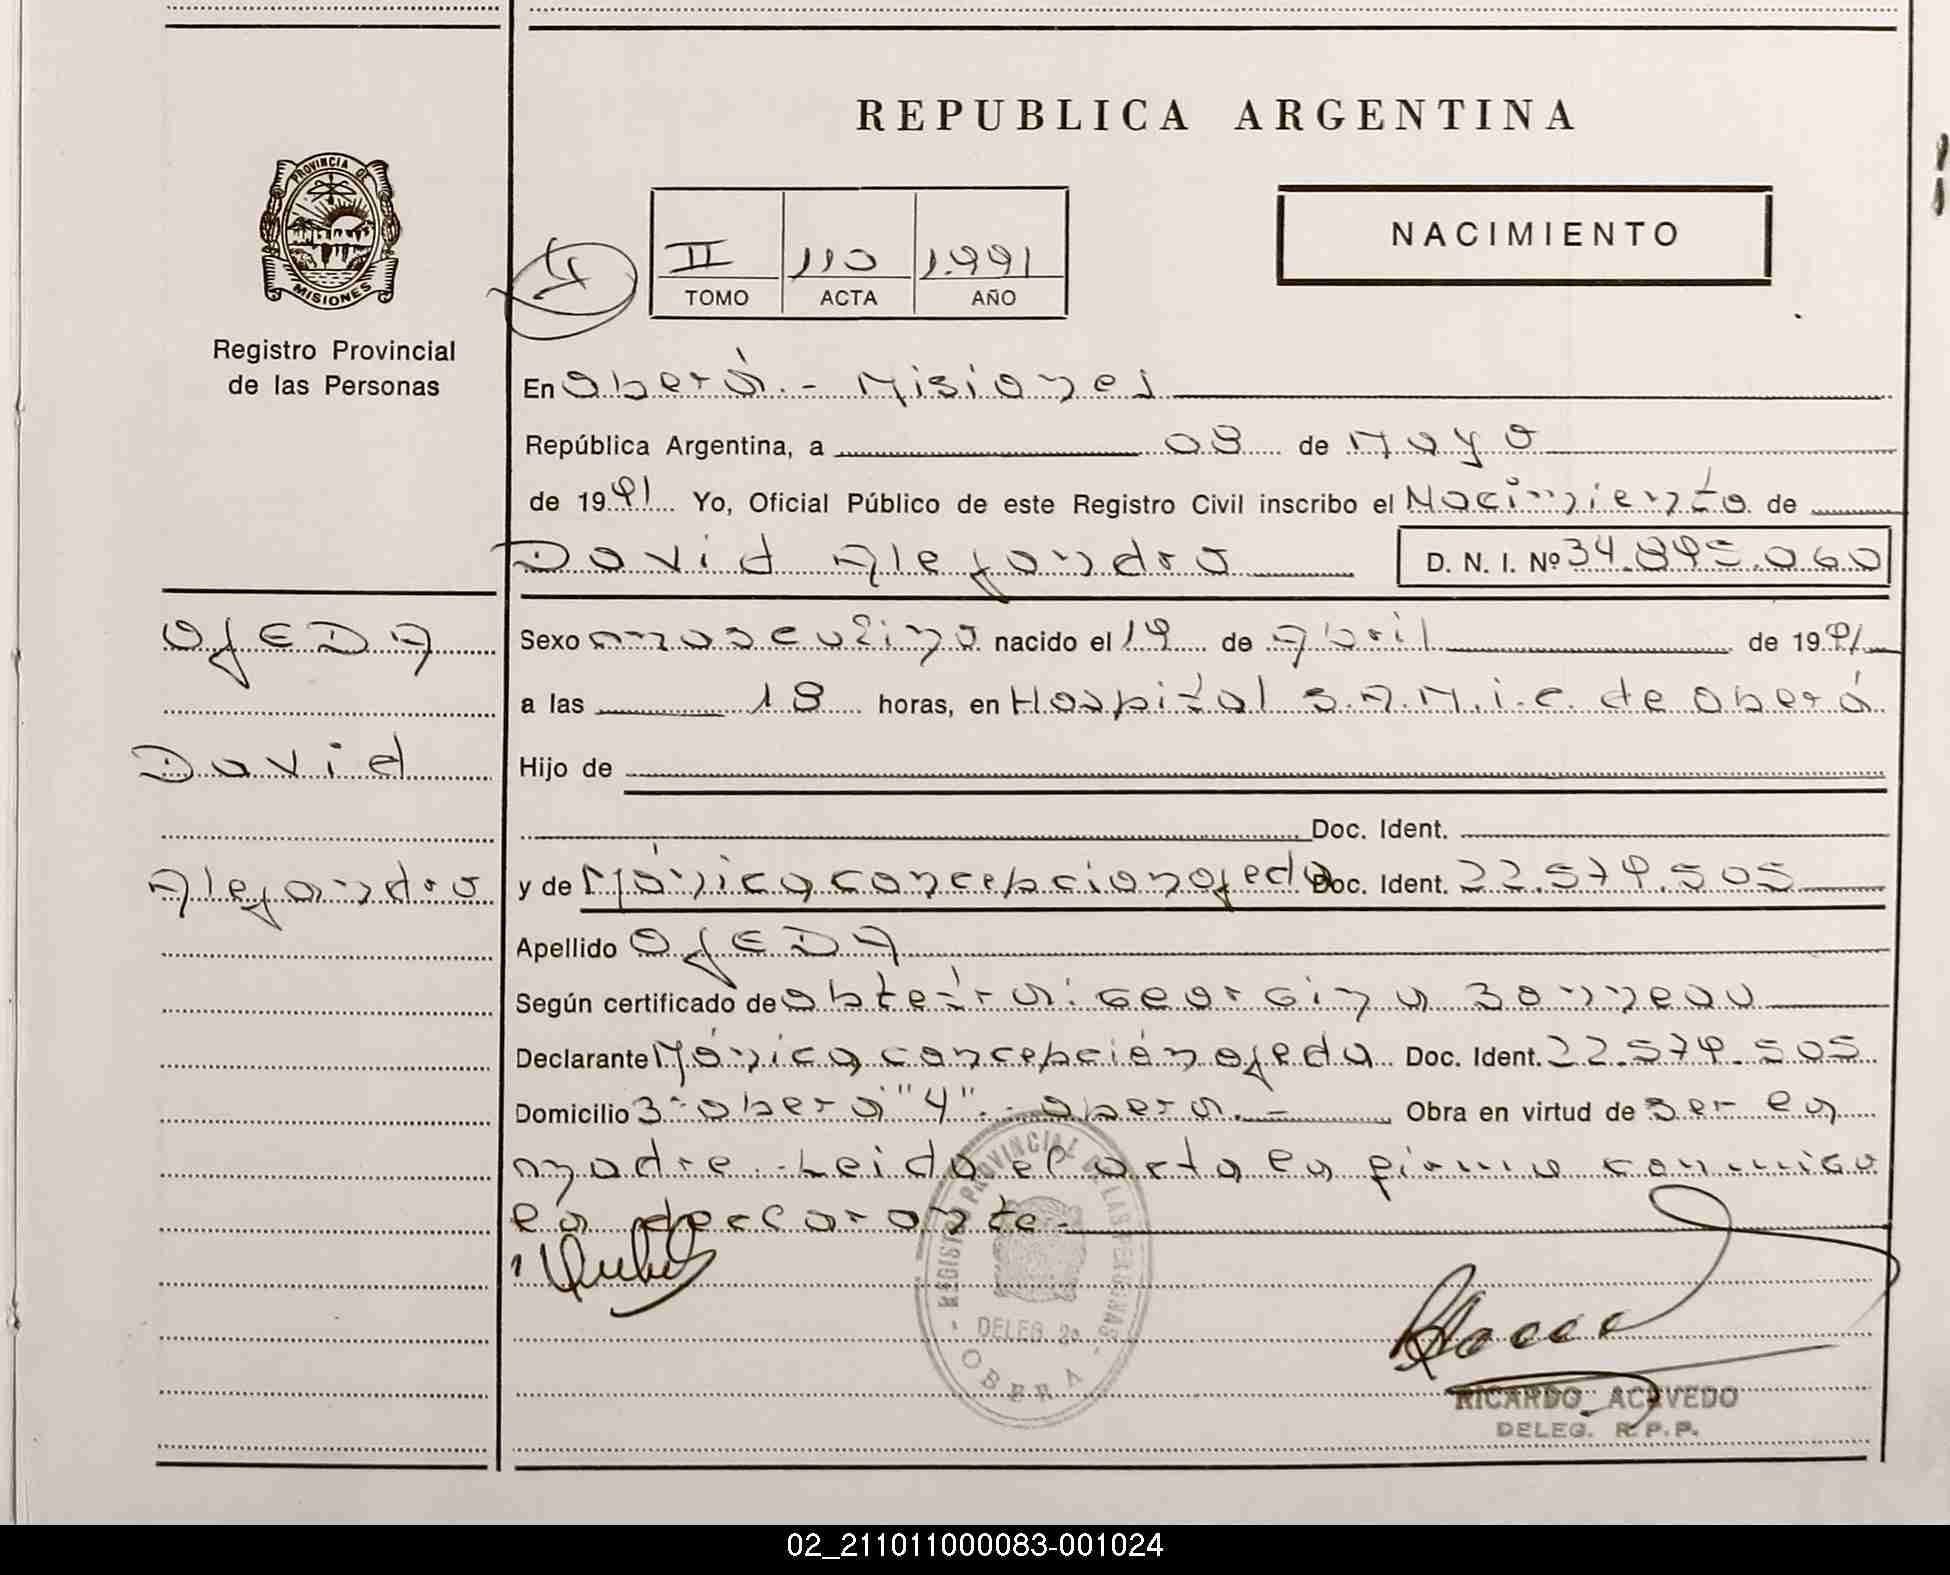 REPUBLICA ARGENTINA
PROVINCIA DE
MISIONES
Registro Provincial
de las Personas
NACIMIENTO
II 110 1.991
TOMO ACTA AÑO
En Oberá.- Misiones
República Argentina, a 08 de Mayo
de 1991 Yo, Oficial Público de este Registro Civil inscribo el Nacimiento de
David Alejandro D. N. I. Nº 34.895.060
OJEDA
David
Alejandro
Sexo masculino nacido el 19 de Abril de 1991
a las 18 horas, en Hospital S.A.M.i.c. de Oberá
Hijo de
Doc. Ident.
y de Mónica Concepcion Ojeda Doc. Ident. 22.579.505
Apellido OJEDA
Según certificado de obtetra: Georgina Bonneau
Declarante Mónica Concepción Ojeda Doc. Ident. 22.579.505
Domicilio 3- Oberá "4".- Oberá.- Obra en virtud de ser la
madre.- Leida el acta la firma conmigo
la declarante.-
REGISTRO PROVINCIAL DE LAS PERSONAS
DELEG. 2a.
OBERA
RICARDO ACEVEDO
DELEG. R.P.P.
02_211011000083-001024